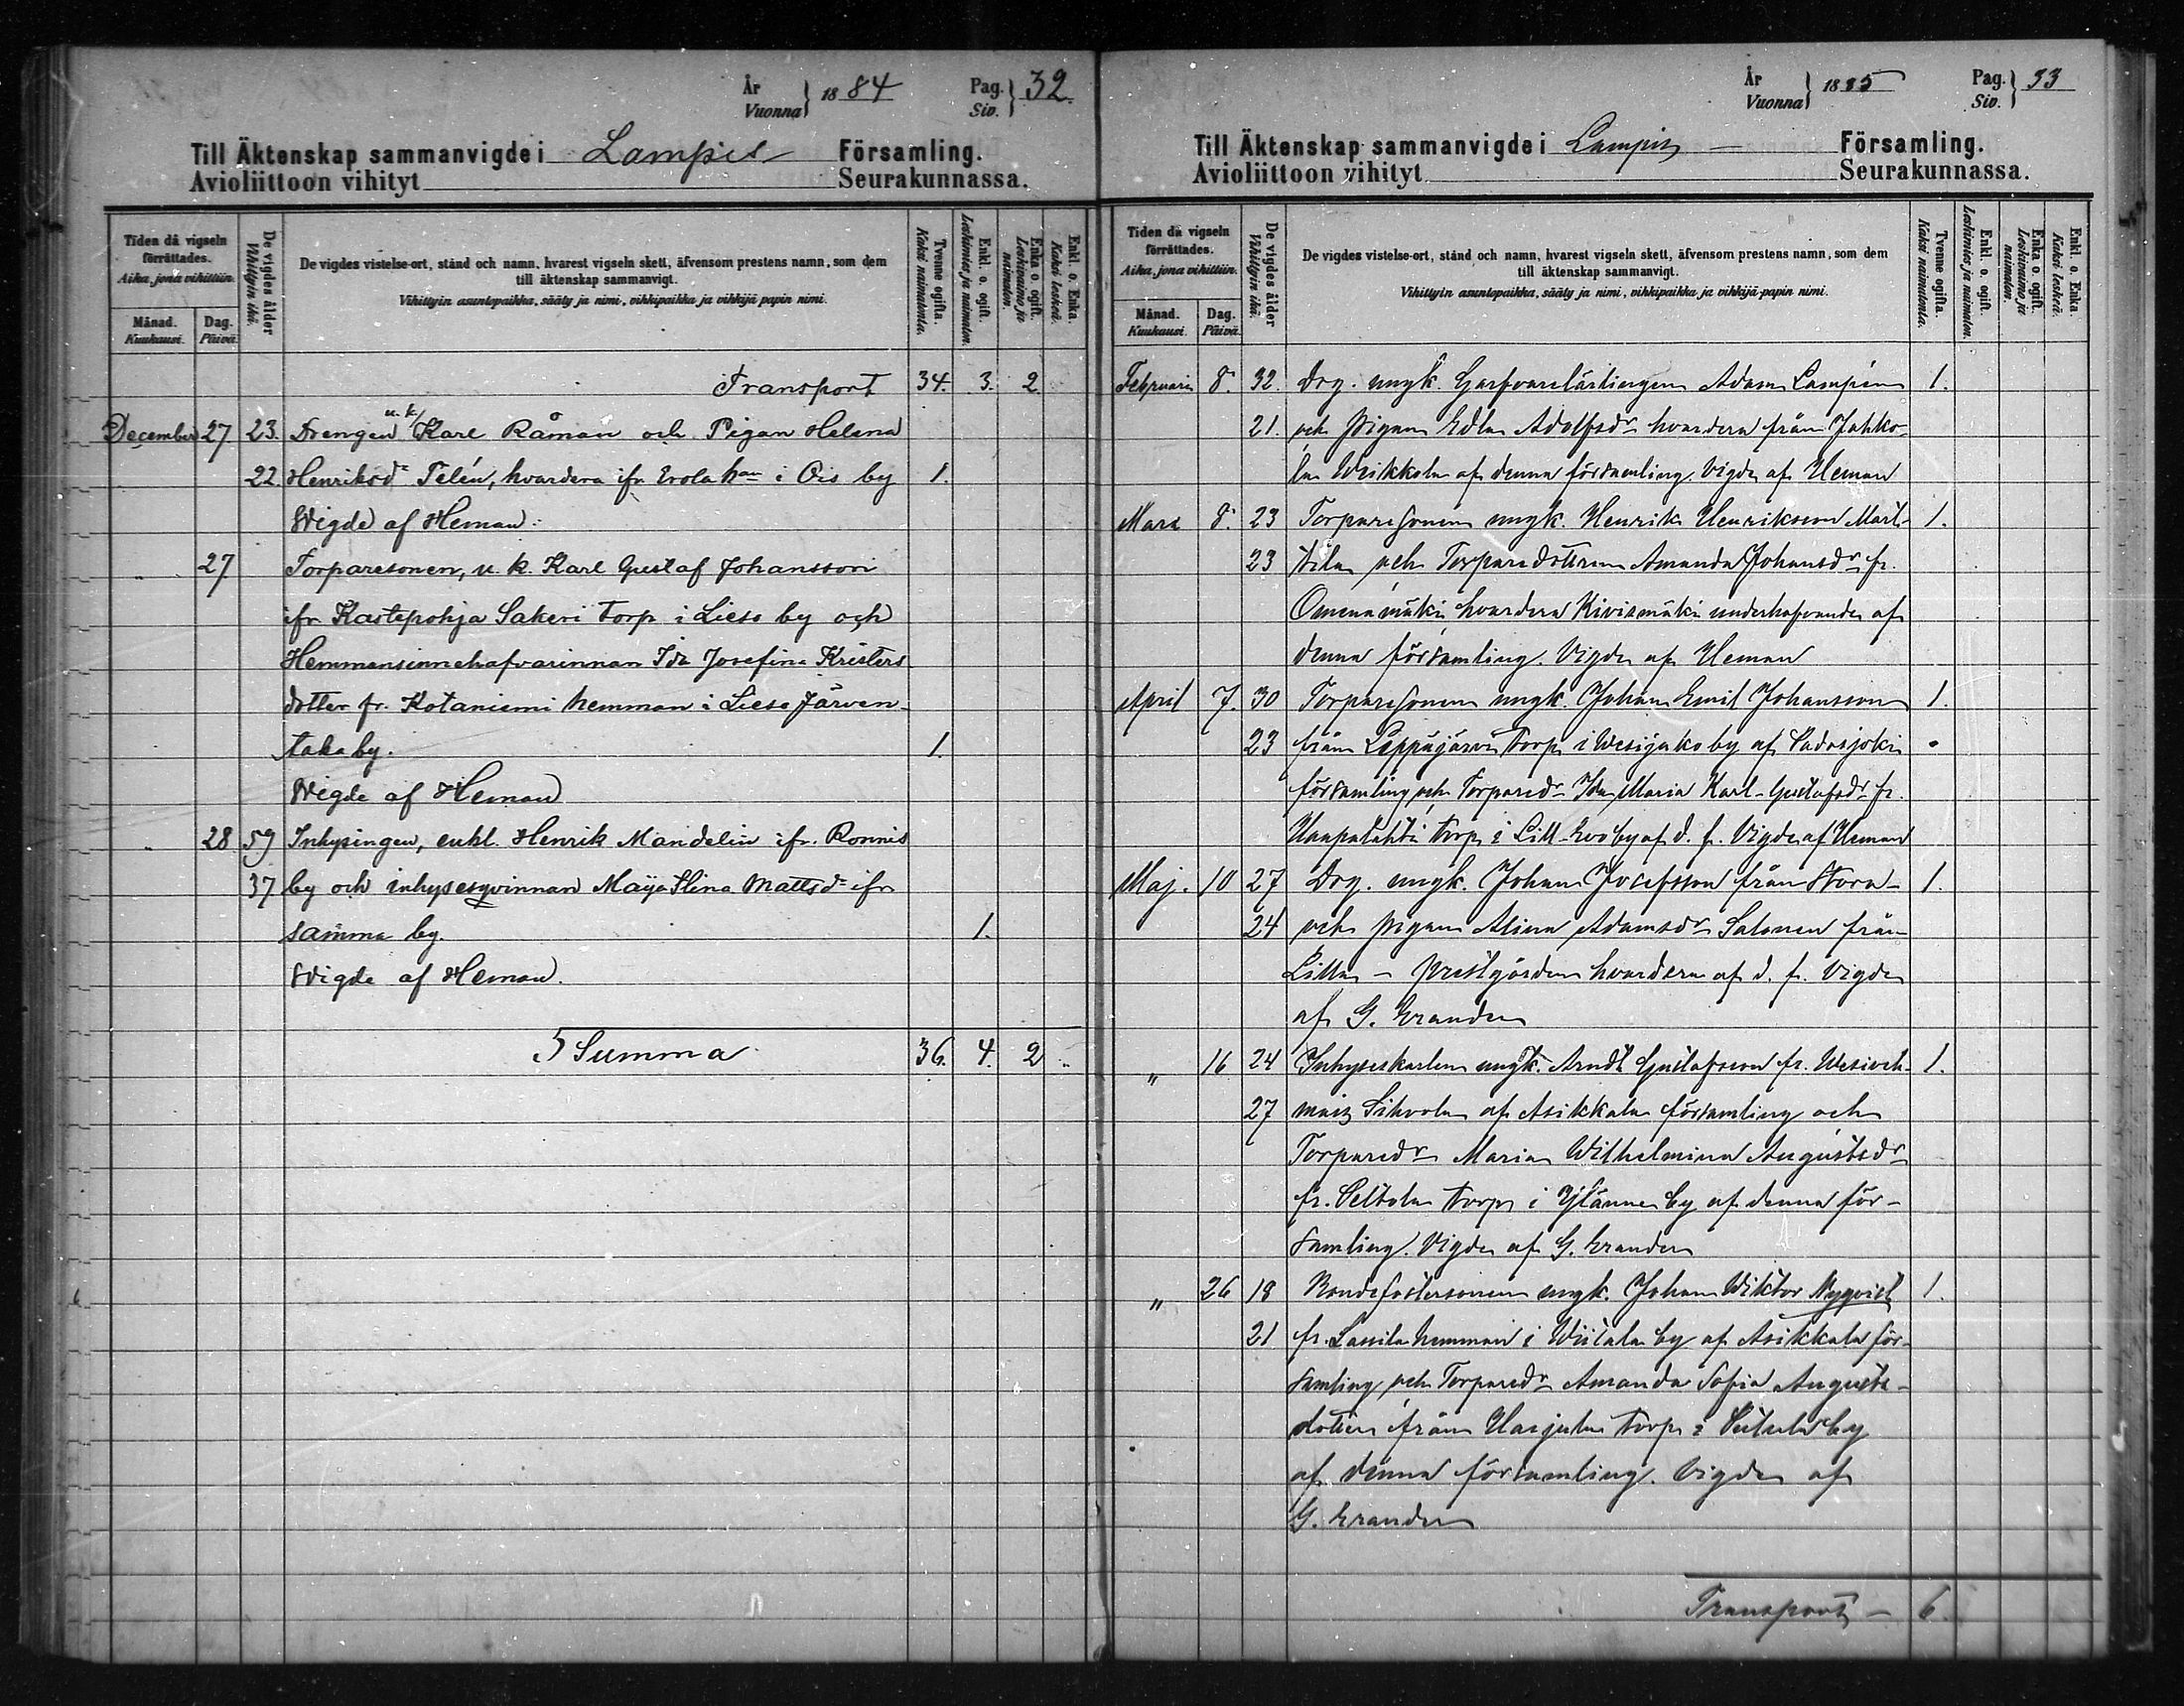 År
Vuonna } 1884 Pag.
Siv. } 32.
Till Äktenskap sammanvigde i Lampis Församling.
Avioliittoon vihityt Seurakunnassa.
Tiden då vigseln förrättades.
Aika, jona vihittiin.
Månad.
Kuukausi.
Dag.
Päivä.
De vigdes ålder
Vihittyin ikä.
De vigdes vistelse-ort, stånd och namn, hvarest vigseln skett, äfvensom prestens namn, som dem
till äktenskap sammanvigt.
Vihittyin asuntopaikka, sääty ja nimi, vihkipaikka ja vihkijä papin nimi.
Tvenne ogifta.
Kaksi naimatonta.
Enkl. o. ogift.
Leskimies ja naimaton.
Enka o. ogift.
Leskivaimo ja naimaton.
Enkl. o. Enka.
Kaksi leskeä.
Transport 34. 3. 2
December 27 23. Drengen u.k. Karl Råman och Pigan Helena
22. Henriksdr Telén, hvardera ifr. Erola hmn i Ois by 1.
Wigde af Heman.
„ 27 Torparesonen, u. k. Karl Gustaf Johansson
ifr Kastepohja Sakeri torp i Lieso by och
Hemmansinnehafvarinnan Ida Josefina Kristers
dotter fr. Kotaniemi hemman i Lieso Järven-
taka by. 1.
Wigde af Heman
„ 28 59 Inhysingen, enkl. Henrik Mandelin ifr. Ronnis
37 by och inhysesqvinnan Maija Stina Mattsdr ifr
samma by. 1.
Wigde af Heman.
Summa 36. 4. 2 „
År
Vuonna } 1885 Pag.
Siv. } 33
Till Äktenskap sammanvigde i Lampis Församling.
Avioliittoon vihityt Seurakunnassa.
Tiden då vigseln förrättades.
Aika, jona vihittiin.
Månad.
Kuukausi.
Dag.
Päivä.
De vigdes ålder
Vihittyin ikä.
De vigdes vistelse-ort, stånd och namn, hvarest vigseln skett, äfvensom prestens namn, som dem
till äktenskap sammanvigt.
Vihittyin asuntopaikka, sääty ja nimi, vihkipaikka ja vihkijä-papin nimi.
Tvenne ogifta.
Kaksi naimatonta.
Enkl. o. ogift.
Leskimies ja naimaton.
Enka o. ogift.
Leskivaimo ja naimaton.
Enkl. o. Enka.
Kaksi leskeä.
Februari 8. 32. Drg. ungk. Garfvarelärlingen Adam Lampén 1.
21. och pigan Edla Adolfsdr hvardera från Jahko-
la Weikkola af denna församling. Vigde af Heman
Mars 8. 23 Torparesonen ungk. Henrik Henriksson Mart- 1.
23 tila och Torparedottren Amanda Johansdr fr.
Omenamäki hvardera Kivismäki underhafvande af
denna församling. Vigde af Heman
April 7. 30 Torparesonen ungk. Johan Emil Johansson 1.
23 från Leppäjärvi torp i Wesijako by af Padasjoki
församling och Torparedr Ida Maria Karl-Gustafsdr fr.
Haapalahti torp i Lill-Evo by af d. f. Vigde af Heman
Maj. 10 27 Drg. ungk. Johan Josefsson från Stora- 1.
24 och pigan Alina Adamsdr Salonen från
Lilla- prestgården hvardera af d. f. Vigde
af G. Erander
„ 16 24 Inhyseskarlen ungk. Arndt Gustafsson fr. Wesiveh- 1.
27 mais Sihvola af Asikkala församling och
Torparedr Maria Wilhelmina Augustsdr
fr. Peltola torp i Ylänne by af denna för-
samling. Vigde af G. Erander
„ 26 18 Bondefostersonen ungk. Johan Wiktor Nyqvist 1.
21 fr. Lassila hemman i Wiitala by af Asikkala för-
samling och Torparedr Amanda Sofia Augusts-
dotter från Harjula torp i by
af denna församling. Vigde af
G. Erander
Transport - 6.